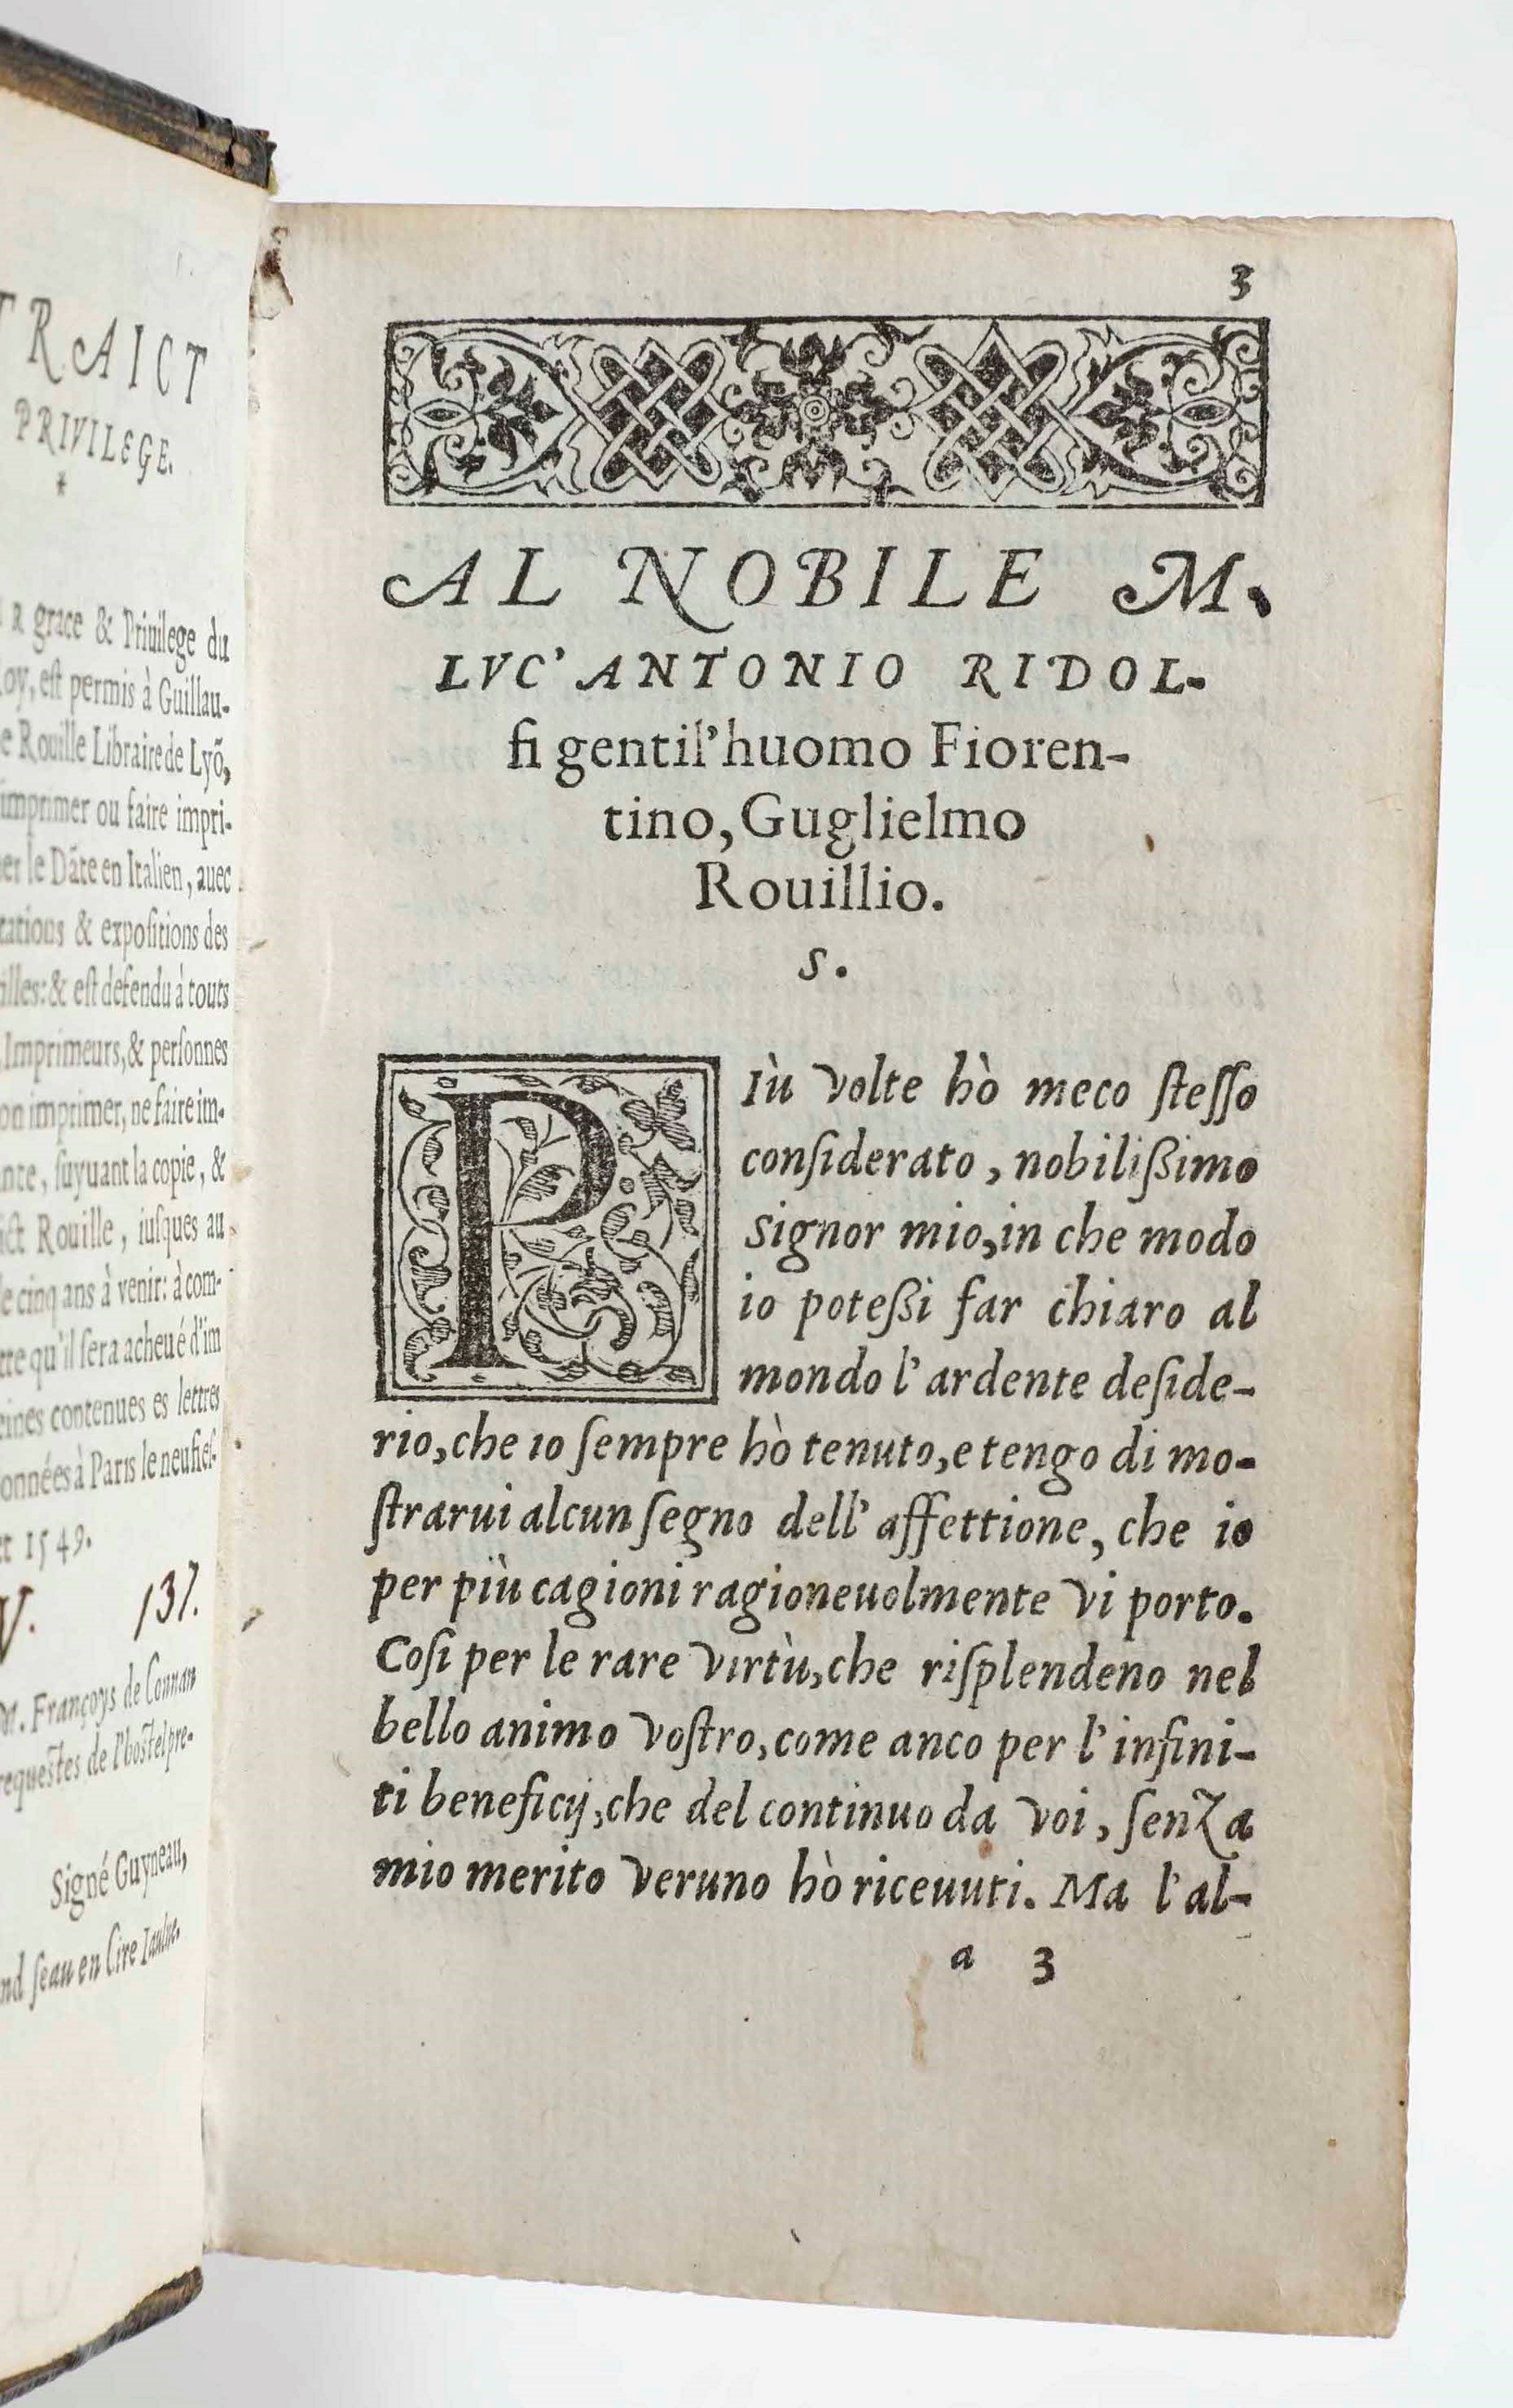 TRAICT
PRIVILEGE.
*
grace & Priuilege du
est permis à Guillau-
Rouille Libraire de Lyõ,
imprimer ou faire impri-
le Dãte en Italien, auec
& expositions des
& est defendu à touts
Imprimeurs, & personnes
imprimer, ne faire im-
suyuant la copie, &
Rouille, iusques au
cinq ans à venir: à com-
qu'il sera acheué d'im
contenues es lettres
à Paris le neufies-
1549.
137.
Françoys de Connan
requestes de l'hostel pre-
Signé Guyneau,
seau en Cire Iaulne.
3
AL NOBILE M.
LVC' ANTONIO RIDOL-
fi gentil'huomo Fioren-
tino, Guglielmo
Rouillio.
S.
PIù volte hò meco ſteſſo
conſiderato, nobilißimo
Signor mio, in che modo
io poteßi far chiaro al
mondo l'ardente deſide-
rio, che io ſempre hò tenuto, e tengo di mo-
ſtrarui alcun ſegno dell'affettione, che io
per più cagioni ragioneuolmente vi porto.
Coſi per le rare virtù, che riſplendeno nel
bello animo voſtro, come anco per l'infini-
ti beneficij, che del continuo da voi, ſenza
mio merito veruno hò riceuuti. Ma l'al-
a 3